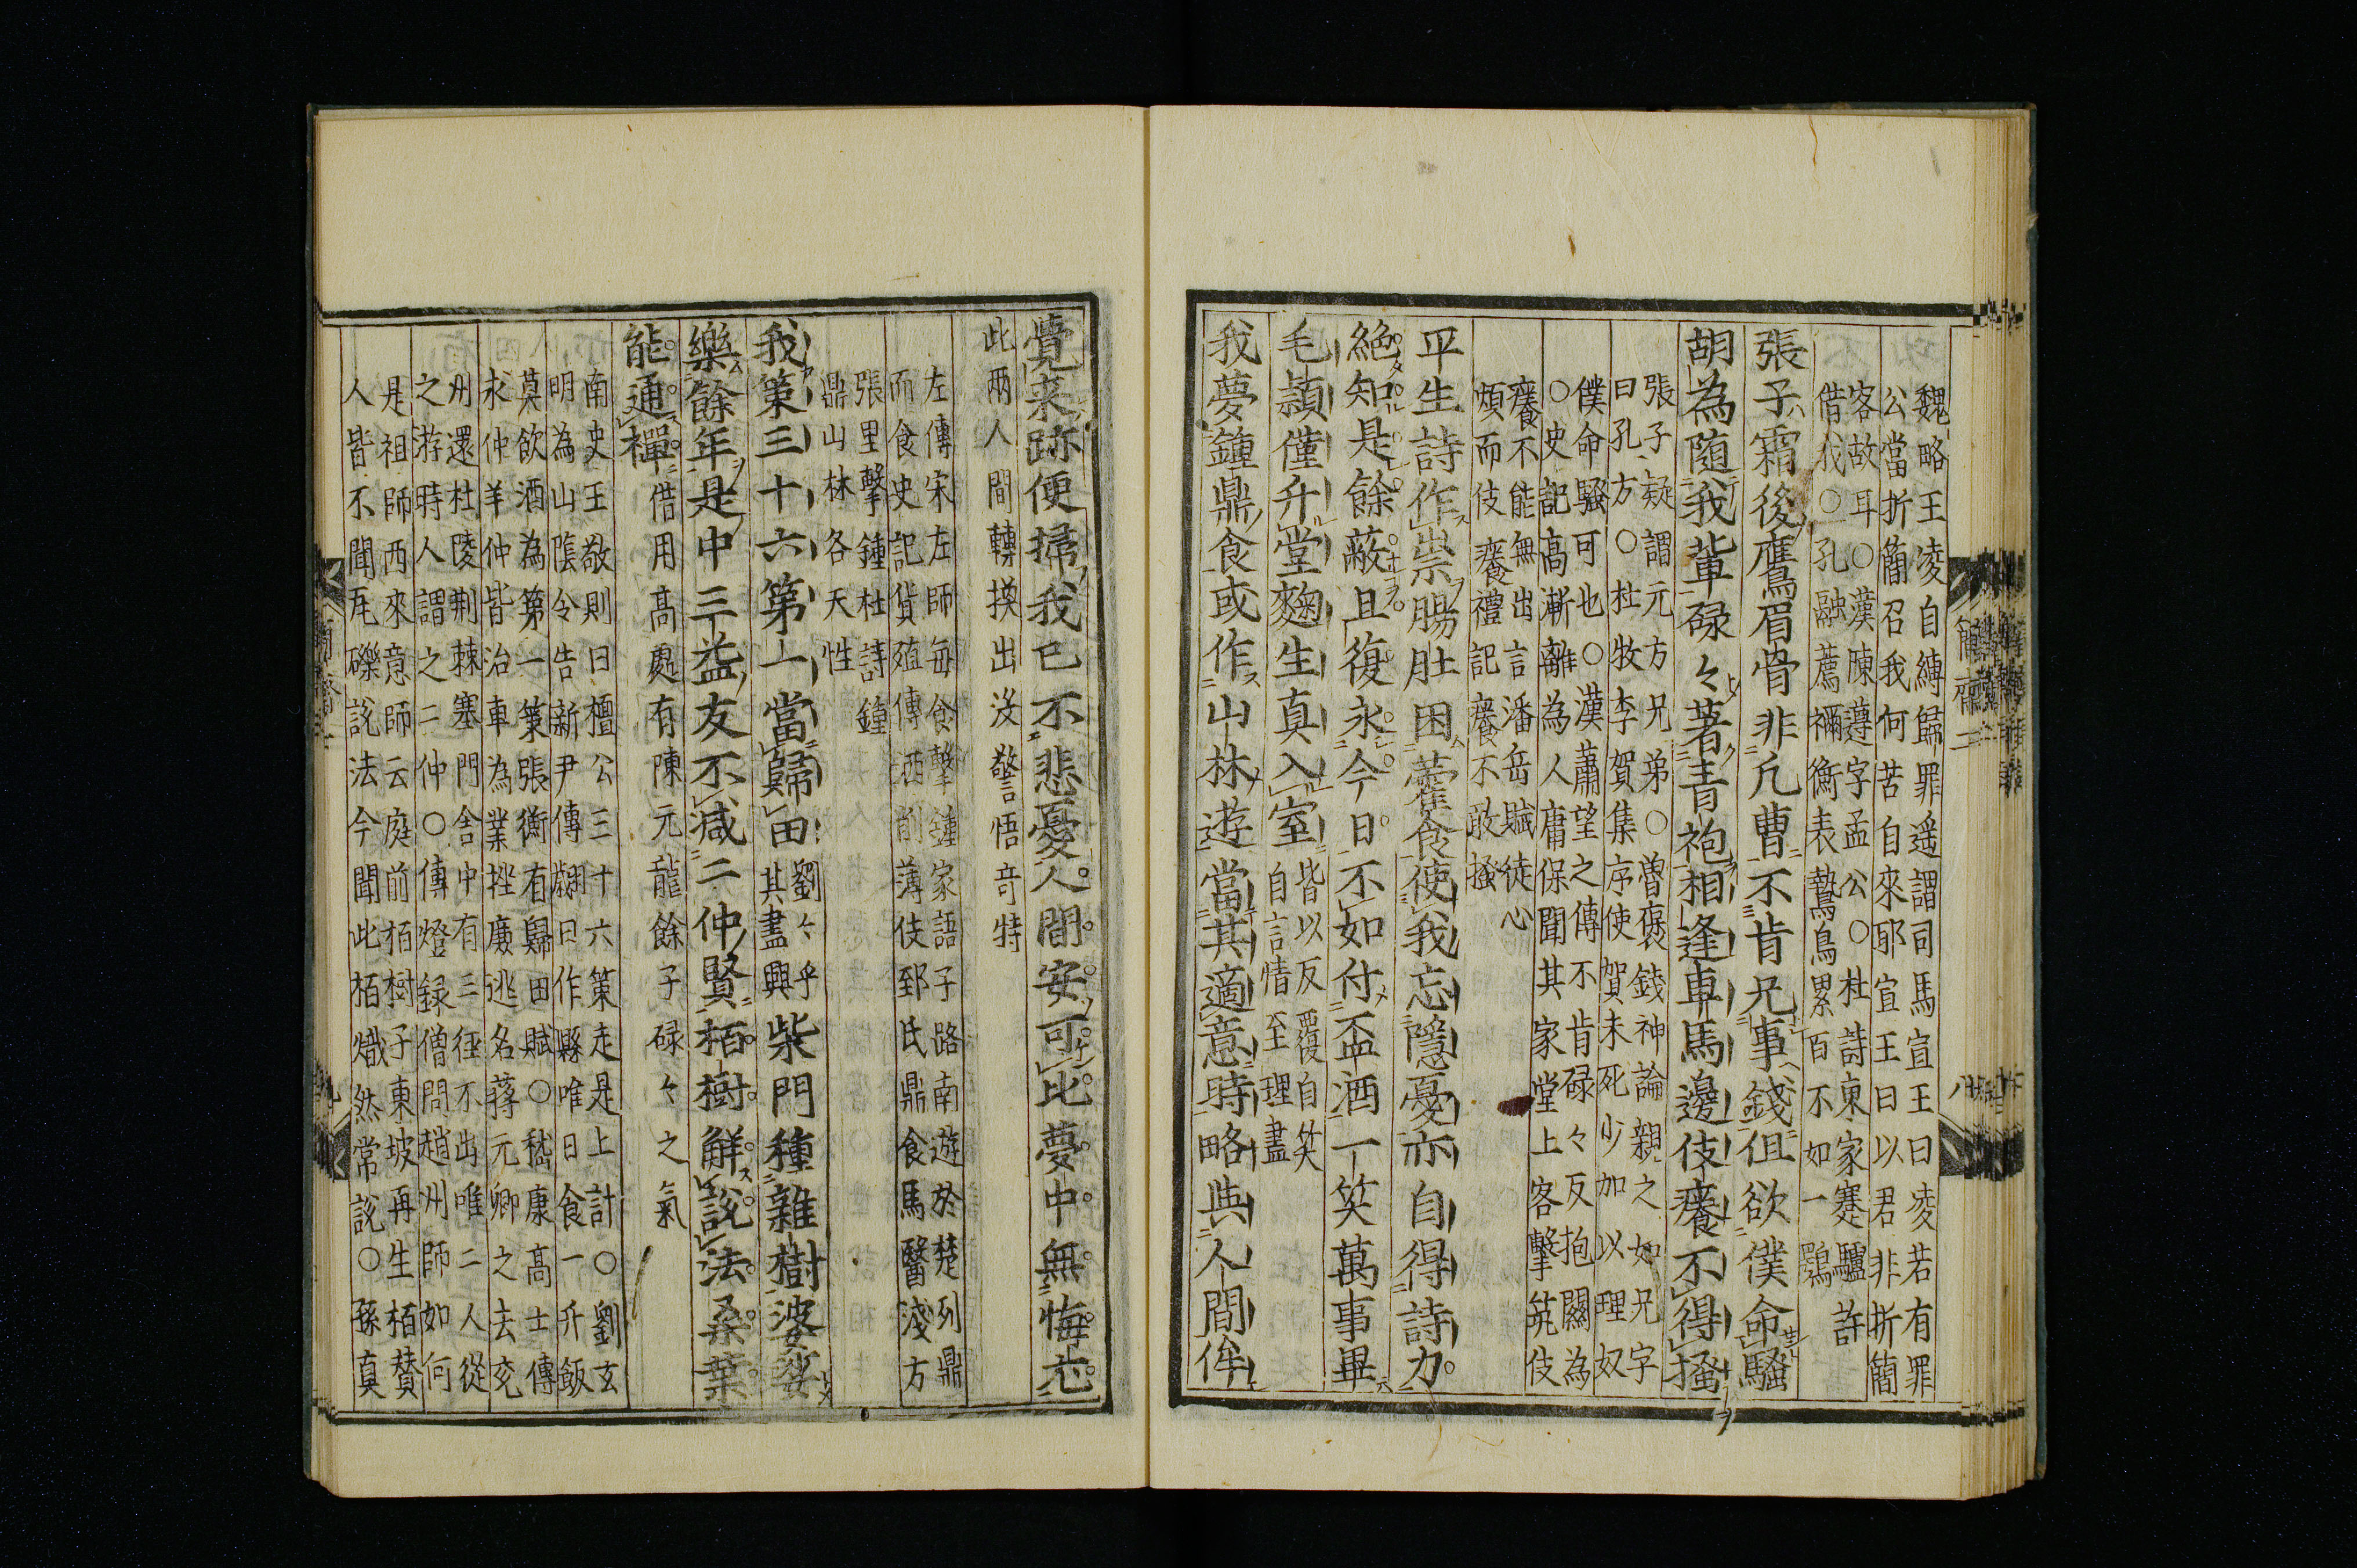 魏略王凌自縛歸罪遥謂司馬宣王曰凌若有罪
公當折簡召我何苦自來耶宣王曰以君非折簡
客故耳○漢陳遵字孟公○杜詩東家蹇驢許
借我○孔融薦禰衡表鷙鳥累百不如一鶚
張子霜後鷹眉骨非凡曹不肯兄事錢但欲僕命騷
胡為随我軰碌々著青袍相逢車馬邊伎癢不得搔
張子疑謂元方兄弟○魯褒錢神論親之如兄字
曰孔方○杜牧李賀集序使賀未死少加以理奴
僕命騷可也○漢蕭望之傳不肯碌々反抱關為
○史記高漸離為人庸保聞其家堂上客擊筑伎
癢不能無出言潘岳賦徒心
煩而伎癢禮記癢不敢搔
平生詩作祟腸肚困藿食使我忘隱憂亦自得詩力
絶知是餘蔽且復永今日不如付盃酒一笑萬事畢
毛頴僅升堂麴生真入室
皆以反覆自笑
自言情至理盡
我夢鍾鼎食或作山林遊當其適意時略與人間侔
覺来跡便掃我已不悲憂人間安可比夢中無悔尤
此兩人間轉換出沒警悟竒特
左傳宋左師毎食擊鍾家語子路南遊於楚列鼎
而食史記貨殖傳洒削薄伎郅氏鼎食馬醫淺方
張里擊鍾杜詩鍾
鼎山林各天性
我策三十六第一當歸田
劉々乎
其盡興
柴門種雜樹婆娑
樂餘年是中三益友不减二仲賢栢樹解說法桑葉
能通禪
借用髙處有陳元龍餘子碌々之氣
南史王敬則曰檀公三十六策走是上計○劉玄
明為山隂令告新尹傳翽曰作縣唯日食一升飯
莫飲酒為第一策張衡有歸田賦○嵇康髙士傳
求仲羊仲皆治車為業挫廉逃名蔣元卿之去兗
州還杜陵荆棘塞門舎中有三徑不出唯二人從
之游時人謂之二仲○傳燈録僧問趙州師如何
是祖師西來意師云庭前栢樹子東坡再生栢賛
人皆不聞瓦礫說法今聞此栢熾然常說○孫真
簡齋二
八